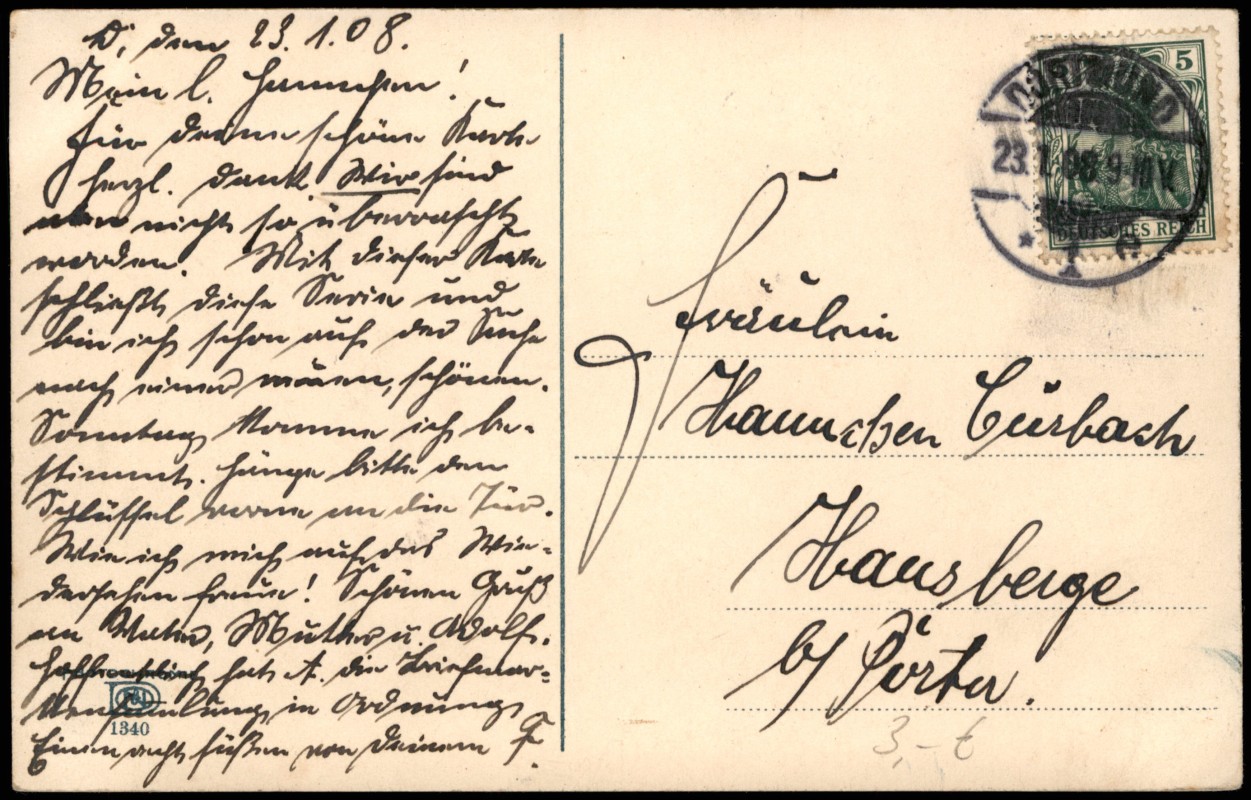 D, den 23.1.08.
Mein l. Hannchen!
Für deine schöne Karte
herzl. Dank. Wir sind
aber nicht so überrascht
worden. Mit dieser Karte
schließt diese Serie und
bin ich schon auf der Suche
nach einer neuen, schönen.
Sonntag komme ich be-
stimmt. Hänge bitte den
Schlüssel vorne an die Tür.
Wie ich mich auf das Wie-
dersehen freue! Schönen Gruß
an Vater, Mutter u. Adolf.
Hoffentlich hat A. die Briefmar-
kensammlung in Ordnung
Einen recht süßen von deinem F.
1340
DORTMUND
23.1.08.9-10V.
* 1 e
5
DEUTSCHES REICH
Fräulein
Hannchen Cürbach
Hausberge
b/ Pörta.
3,- €